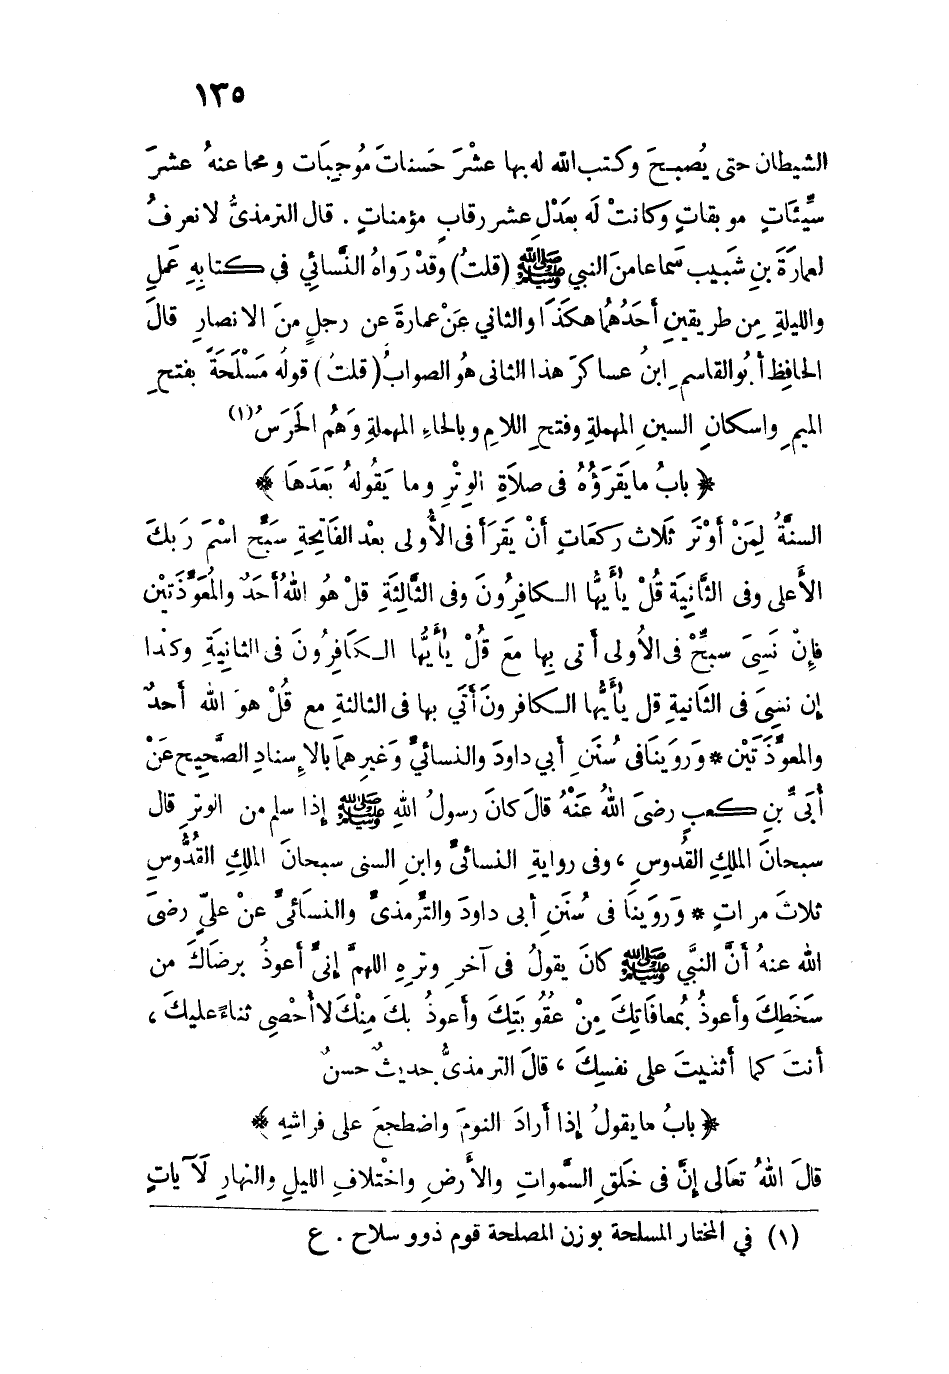 ١٣٥
الشيطان حتى يُصبحَ وكتب الله له بها عشْرَ حَسناتَ مُوجِبَات ومحا عنهُ عشرَ
سيِّئَاتٍ موبقاتٍ وكانتْ لَه بعَدْلِ عشر رقابٍ مؤمناتٍ . قال الترمذىُّ لا نعرفُ
لعمارَةَ بنِ شَبيب سَماعا منَ النبي ﷺ (قلتُ) وقدْ رَواهُ النَّسائي في كتابِهِ عَملِ
والليلةِ مِن طريقينِ أَحَدُهُما هكَذَا والثاني عَنْ عمارةَ عن رجلٍ منَ الانصارِ قالَ
الحافِظ أبُو القاسمِ ابنُ عساكرَ هذا الثانى هُو الصوابُ (قلتُ) قولُه مَسْلَحَةً بفتح
الميمِ واسكانِ السينِ المهملةِ وفتحِ اللامِ وبالحاءِ المهملةِ وَهُم الحَرَسُ (١)
﴿ بابُ ما يَقرَؤُهُ فى صلاَةِ الوِتْرِ وما يَقُولهُ بَعَدَهَا ﴾
السنَّةُ لِمَنْ أَوْتَر ثَلاث ركعَاتٍ أنْ يَقرَأَ فى الأُولى بعْد الفَاتِحةِ سَبَّحِ اسْمَ رَبكَ
الأَعلى وفى الثَّانِيَة قُلْ يٰأَيُّها الـكافِرُونَ وفى الثَّالِثَةِ قلْ هُو اللهُ أَحَدٌ والمُعَوَّذَتيْن
فإِنْ نَسِىَ سبحٌّ فى الأُولى أَتى بِها مَعَ قُلْ يٰأَيُّها الـكَافِرُونَ فى الثانيَةِ وكذا
إن نسِىَ فى الثَانيةِ قل يٰأَيُّها الـكافرونَ أَتَي بها فى الثالثةِ مع قُلْ هوَ الله أَحدٌ
والمعوَّذَتَيْن * وَرَوينَا فى سُنَنِ أبي داودَ والنسائيِّ وَغيرِهمَا بالإِسنادِ الصَّحِيح عَنْ
أُبَىِّ بنِ كعبٍ رضىَ اللهُ عَنْهُ قالَ كانَ رسولُ اللهِ ﷺ إذا سلم من الوترِ قال
سبحانَ الملكِ القُدوسِ ، وفى روايةِ النسائىِّ وابنِ السنى سبحانَ الملكِ القُدُّوسِ
ثلاثَ مراتٍ * وَرَوينَا فى سُنَنِ أبى داودَ والتِّرمذىِّ والنسَائىِّ عنْ علىٍّ رضىَ
الله عنهُ أنَّ النبَّي ﷺ كانَ يقولُ فى آخرِ وِترِهِ اللهمَّ إنىِّ أعوذُ برِضَاكَ من
سَخَطِكَ وأعوذُ بُمعافَاتِكَ مِنْ عقُوبَتِكَ وأَعوذُ بكَ مِنْكَ لا أُحْصِى ثناءً عليكَ ،
أنتَ كما أثنيتَ على نفسِكَ ، قالَ الترمذىُّ حديثٌ حسنٌ
﴿ بابُ ما يقولُ إذا أرادَ النومَ واضطجعَ على فراشِهِ ﴾
قالَ اللهُ تعَالى إنَّ فى خَلقِ السَّمواتِ والأَرضِ واخْتلافِ الليلِ والنهارِ لَآياتٍ
(١) في المختار المسلحة بوزن المصلحة قوم ذوو سلاح . ع